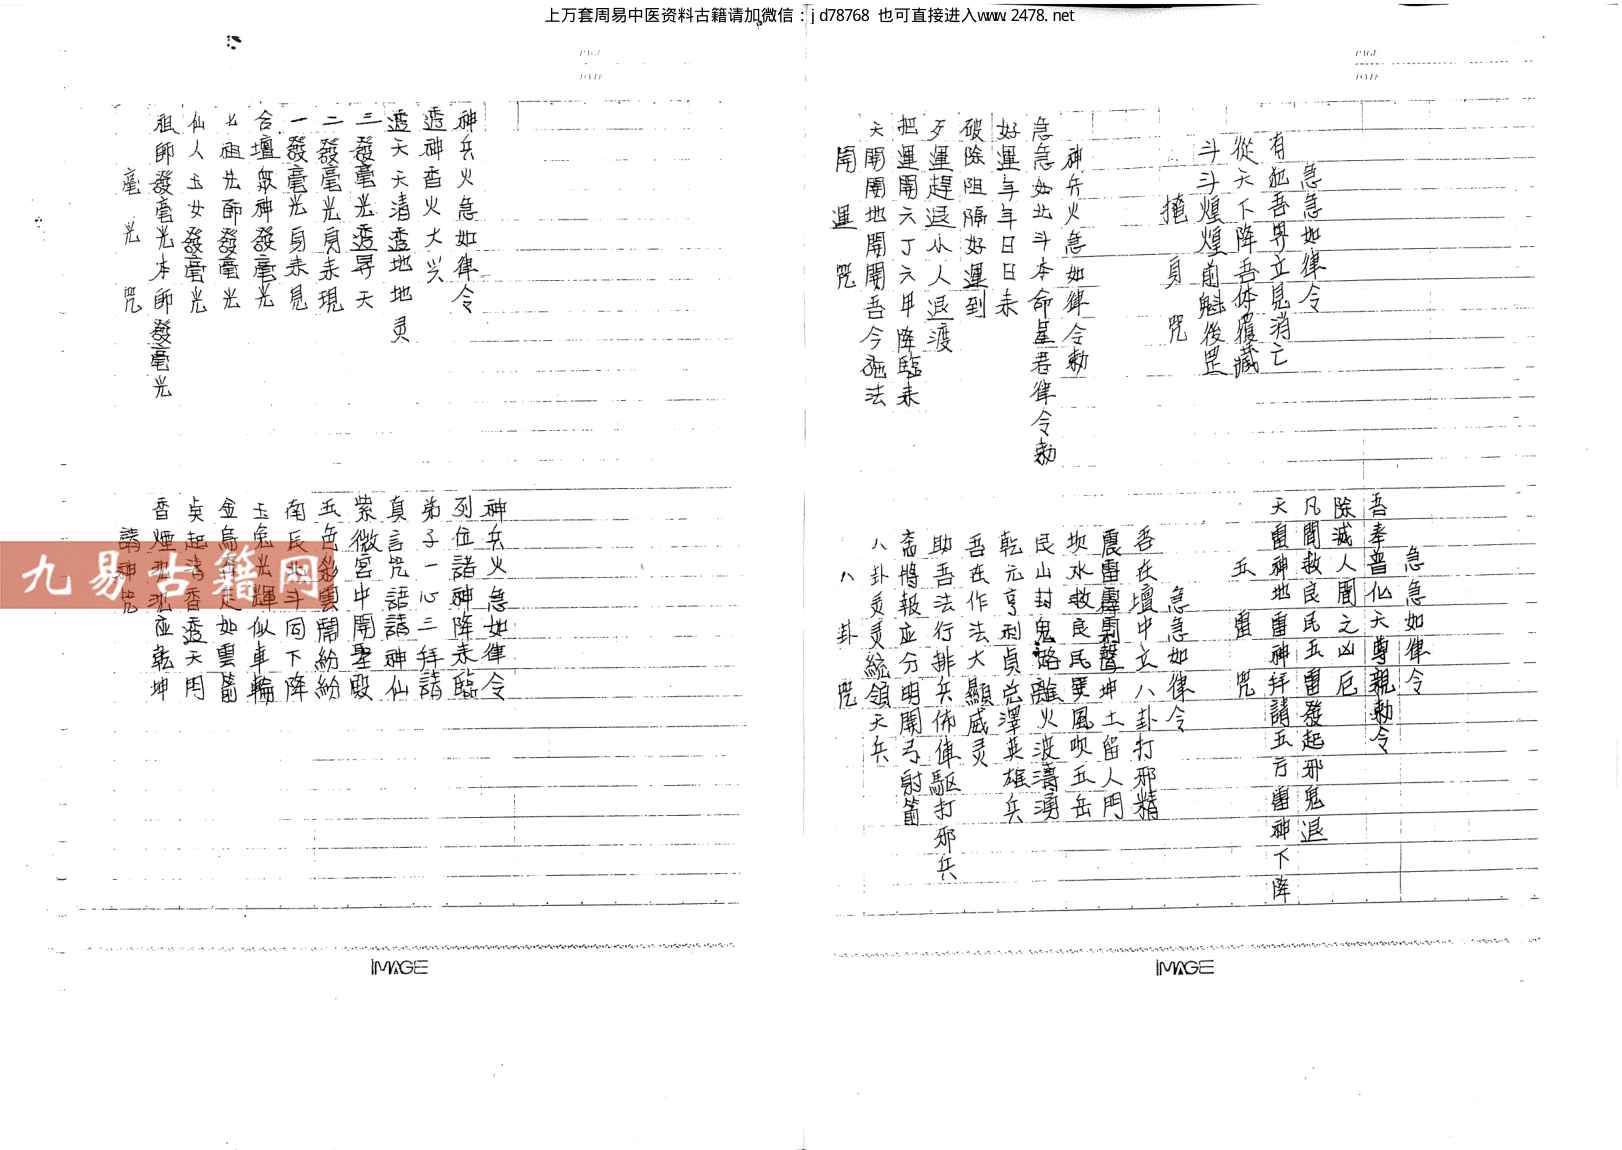 上万套周易中医资料古籍请加微信：jd78768 也可直接进入www.2478.net
毫光咒
祖師發毫光本師發毫光
仙人玉女發毫光
七祖先師發毫光
合壇眾神發毫光
一發毫光身耒見
二發毫光身耒現
三發毫光透昇天
透天天清透地地灵
透神香火大兴
神兵火急如律令
請神咒
香煙弘弘应乾坤
奌起清香透天門
金烏奔走如雲箭
玉兔光輝似車輪
南辰北斗同下降
五色彩雲鬧紛紛
紫微宮中開聖殿
真言咒語請神仙
弟子一心三拜請
列位諸神降耒臨
神兵火急如律令
九易古籍网
IMAGE
PAGE
DATE
開運咒
天開開地開開吾今施法
把運開六丁六甲降臨耒
歹運趕退小人退渡
破除阻隔好運到
好運年年日日耒
急急如北斗本命星君律令勅
神兵火急如律令勅
掩身咒
斗斗煌煌前魁後罡
從天下降吾体覆藏
有犯吾界立見消亡
急急如律令
八卦咒
八卦灵灵統領天兵
斋將報应分明開弓射箭
助吾法行排兵佈陣驅打邪兵
吾在作法大顯威灵
乾元亨利貞兌澤英雄兵
艮山封鬼路離火波濤湧
坎水救良民巽風吹五岳
震雷霹靂聲坤土留人門
吾在壇中立八卦打邪精
急急如律令
五雷咒
天雷神地雷神拜請五方雷神下降
凡間救良民五雷發起邪鬼退
除滅人間之凶厄
吾奉普化天尊親勅令
急急如律令
IMAGE
PAGE
DATE